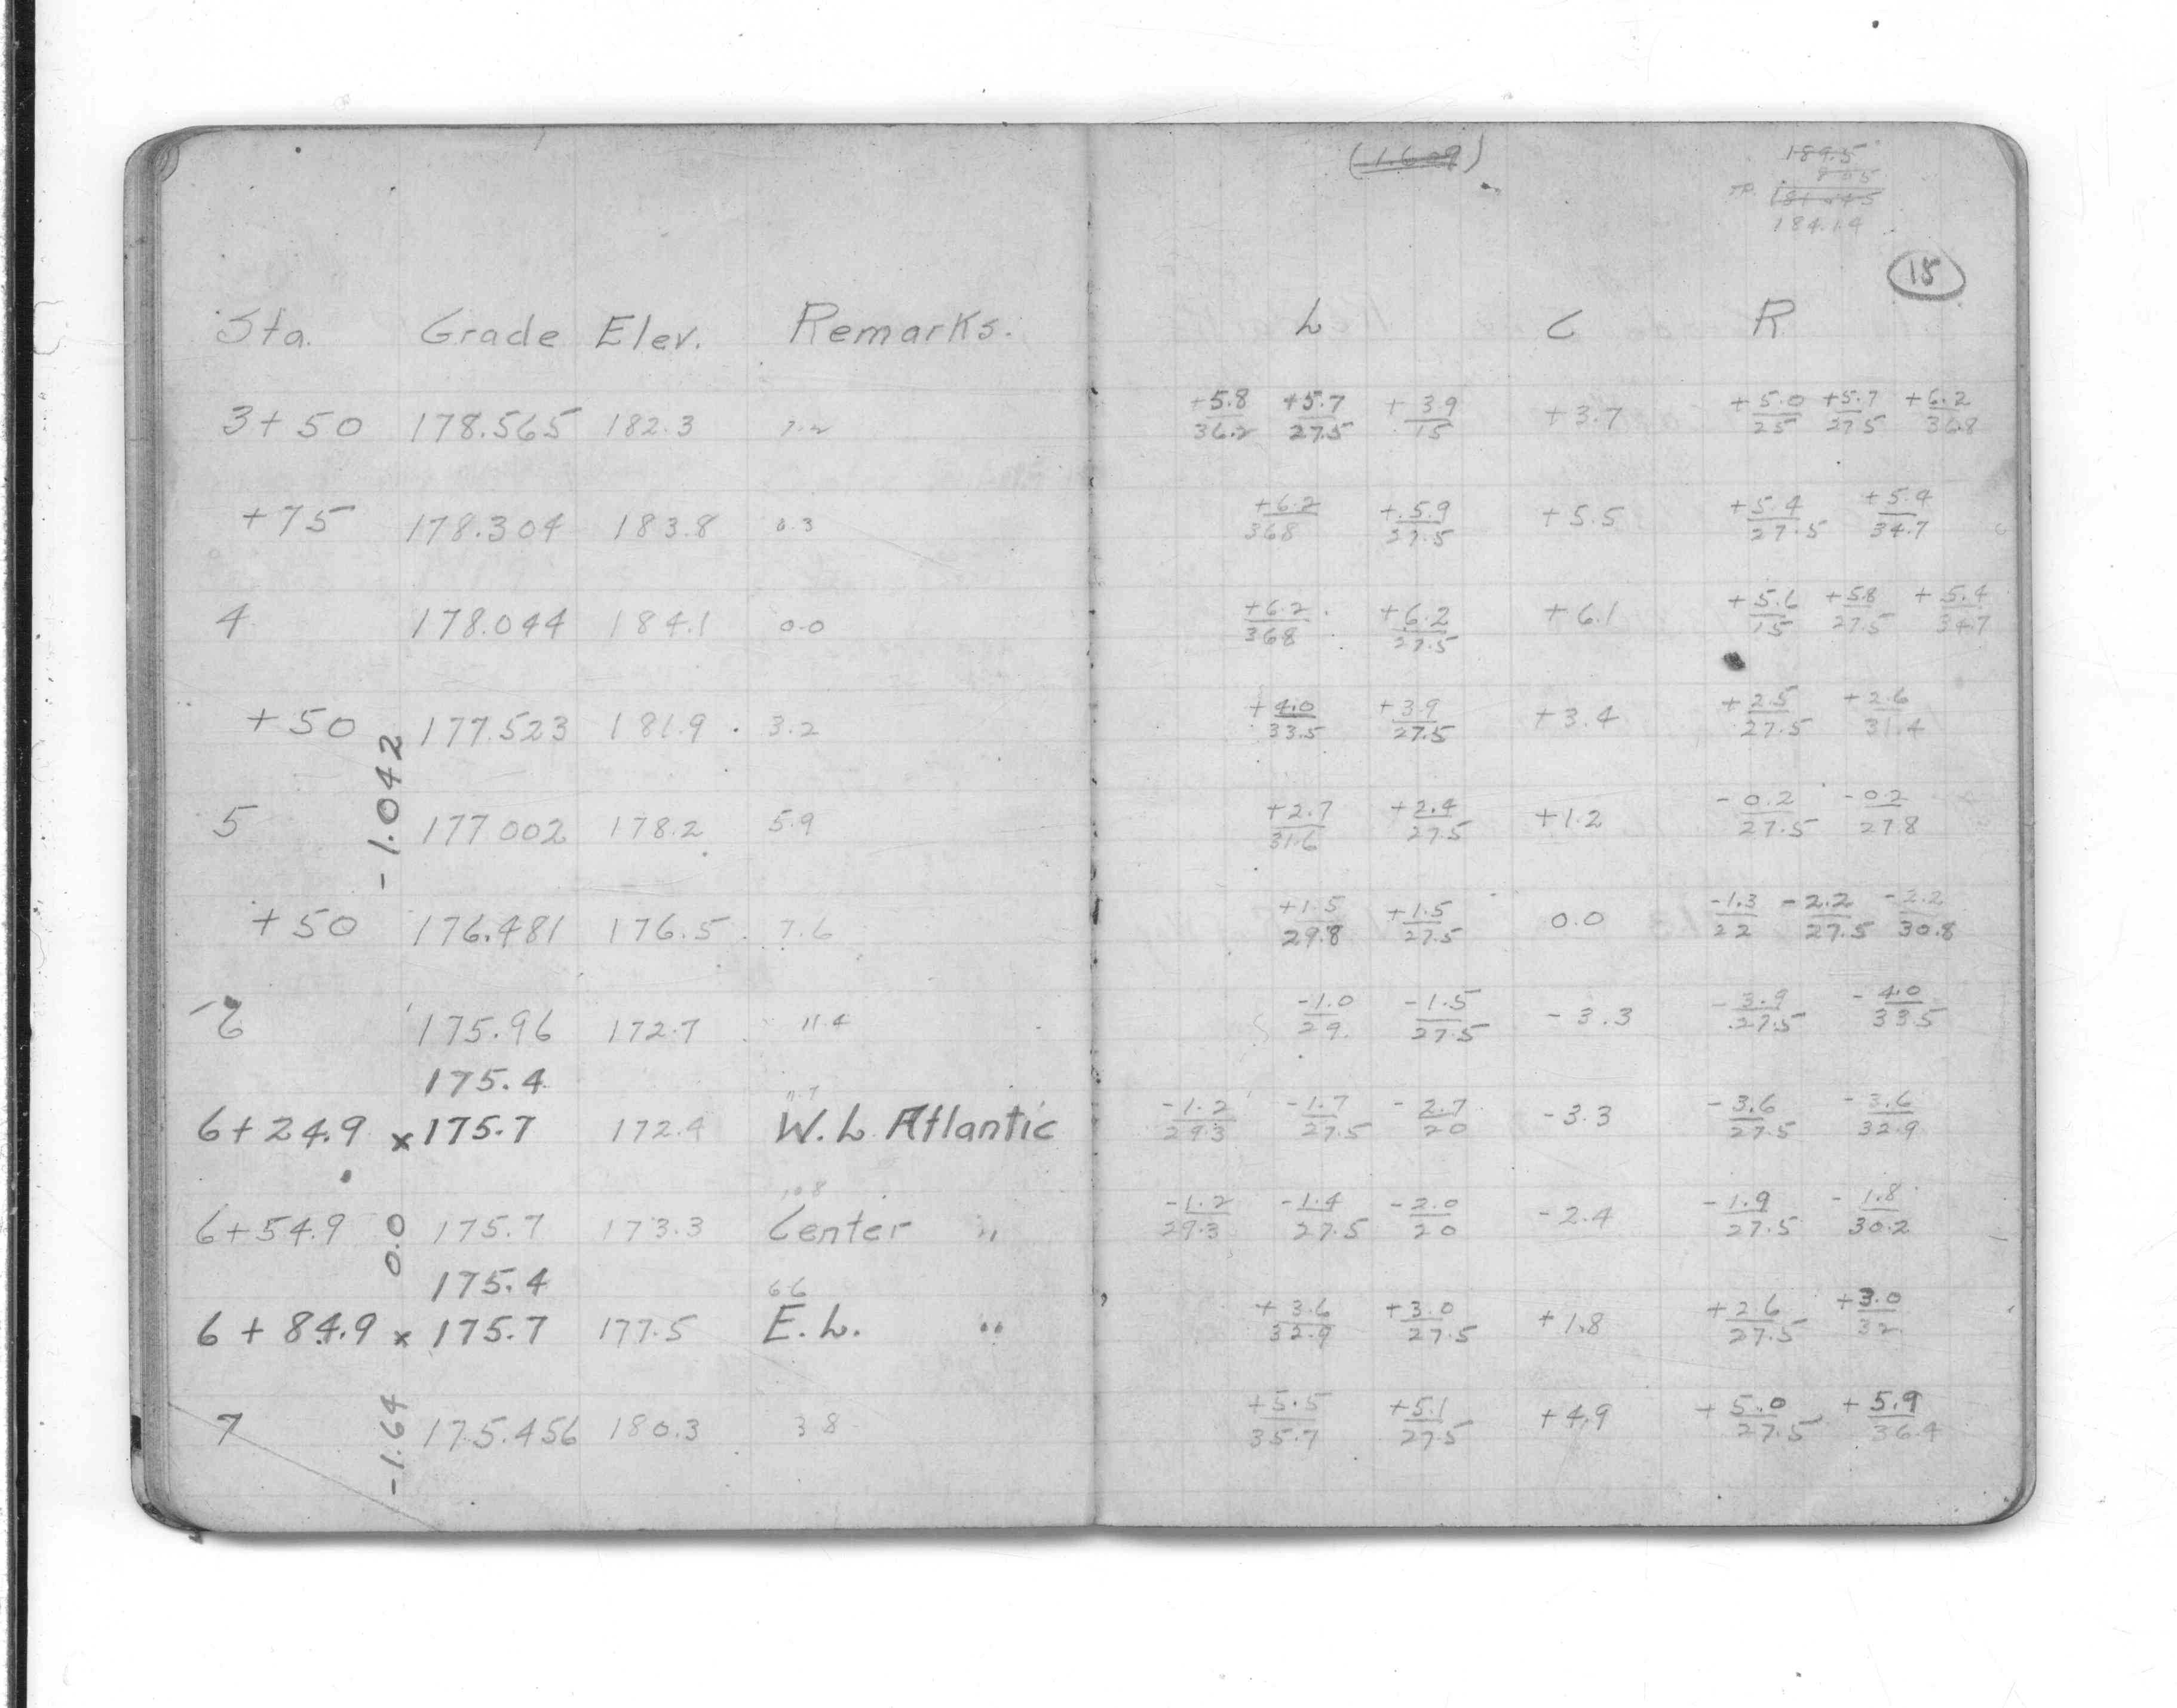 (1.609)
189.5
TP.
184.14
15
Sta. Grade Elev. Remarks. L C R
3+50 178.565 182.3 +5.8/36.2 +5.7/27.5 +3.9/15 +3.7 +5.0/25 +5.7/27.5 +6.2/36.8
+75 178.304 183.8 0.3 +6.2/36.8 +5.9/27.5 +5.5 +5.4/27.5 +5.4/34.7
4 178.044 184.1 0.0 +6.2/36.8 +6.2/27.5 +6.1 +5.6/15 +5.8/27.5 +5.4/34.7
+50 177.523 181.9 3.2 +4.0/33.5 +3.9/27.5 +3.4 +2.5/27.5 +2.6/31.4
-1.042
5 177.002 178.2 5.9 +2.7/31.6 +2.4/27.5 +1.2 -0.2/27.5 -0.2/27.8
+50 176.481 176.5 7.6 +1.5/29.8 +1.5/27.5 0.0 -1.3/22 -2.2/27.5 -2.2/30.8
6 175.96 172.7 11.4 -1.0/29. -1.5/27.5 -3.3 -3.9/27.5 -4.0/33.5
175.4
11.7
6+24.9 x 175.7 172.4 W.L. Atlantic -1.2/29.3 -1.7/27.5 -2.7/20 -3.3 -3.6/27.5 -3.6/32.9
10.8
6+54.9 175.7 173.3 Center " -1.2/29.3 -1.4/27.5 -2.0/20 -2.4 -1.9/27.5 -1.8/30.2
0.0
175.4 6.6
6+84.9 x 175.7 177.5 E.L. " +3.6/32.9 +3.0/27.5 +1.8 +2.6/27.5 +3.0/32
7 175.456 180.3 3.8 +5.5/35.7 +5.1/27.5 +4.9 +5.0/27.5 +5.9/36.4
-1.64